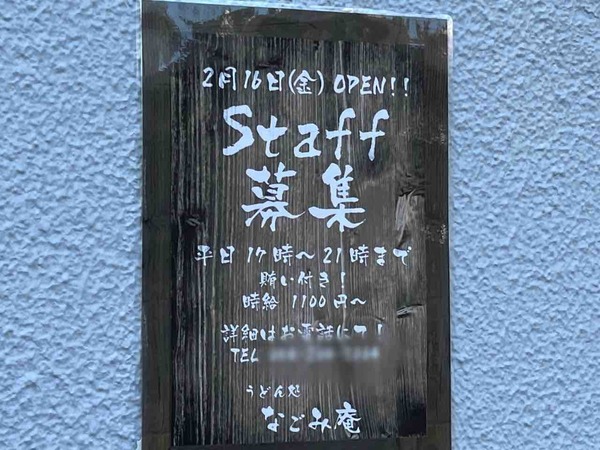 2月16日(金) OPEN!!
Staff
募集
平日 17時〜21時まで
賄い付き!
時給 1100円〜
詳細はお電話にて!
TEL
うどん処
なごみ庵